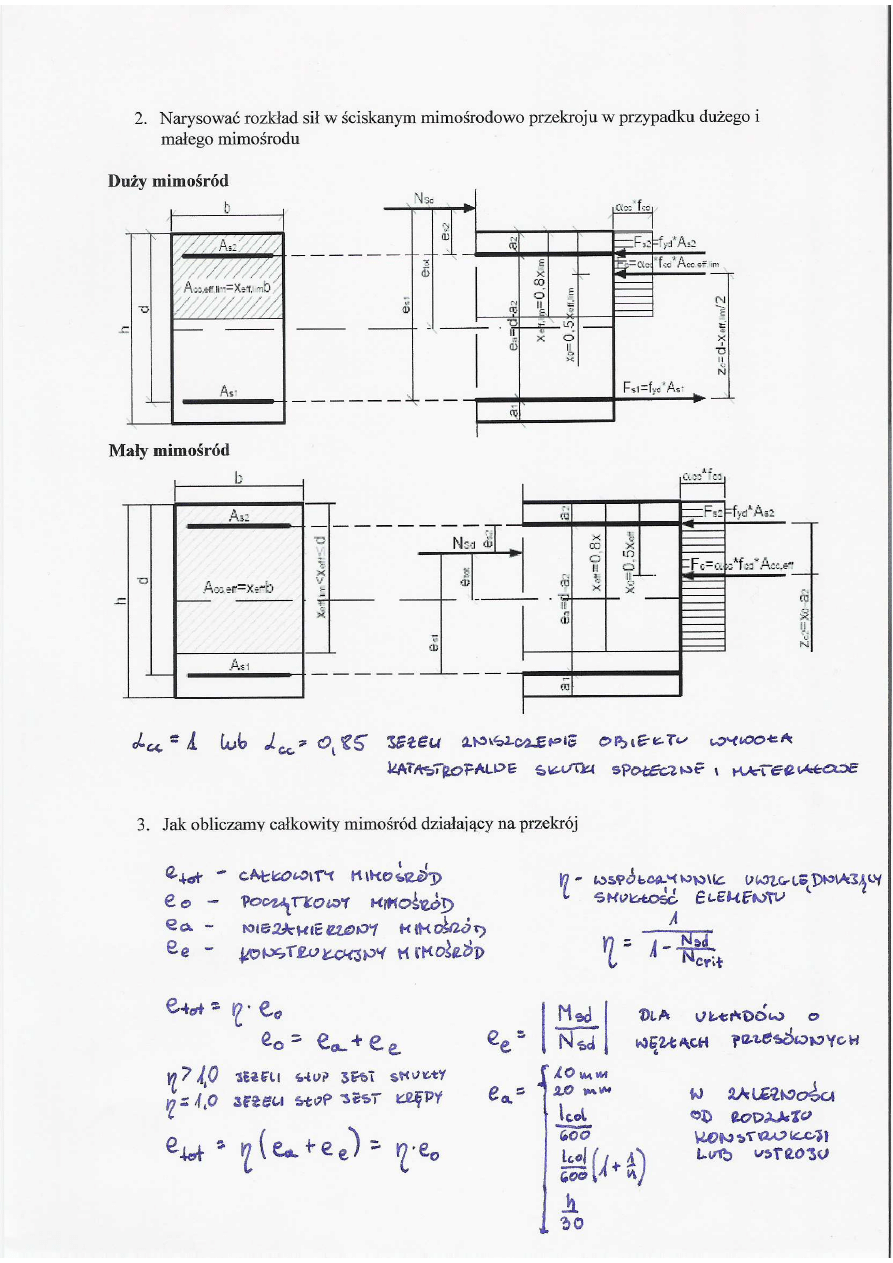 2. Narysować rozkład sił w ściskanym mimośrodowo przekroju w przypadku dużego i
małego mimośrodu
Duży mimośród
b
As2
Acc,eff,lim=Xeff,limb
h
d
As1
NSd
es2
etot
es1
a2
ea=d-a2
xeff,lim=0.8xlim
x0=0.5xeff,lim
a1
αcc*fcd
Fs2=fyd*As2
Fc=αcc*fcd*Acc,eff,lim
zc=d-xeff,lim/2
Fs1=fyd*As1
Mały mimośród
b
As2
Acc,eff=xeffb
h
d
As1
xeff,lim<xeff≤d
NSd
es2
etot
es1
a2
ea=d-a2
xeff=0,8x
x0=0.5xeff
a1
αcc*fcd
Fs2=fyd*As2
Fc=αcc*fcd*Acc,eff
zc2=x0-a2
αcc = 1 lub αcc = 0,85 JEŻELI ZNISZCZENIE OBIEKTU WYWOŁA
KATASTROFALNE SKUTKI SPOŁECZNE I MATERIAŁOWE
3. Jak obliczamy całkowity mimośród działający na przekrój
etot - CAŁKOWITY MIMOŚRÓD
eo - POCZĄTKOWY MIMOŚRÓD
ea - NIEZAMIERZONY MIMOŚRÓD
ee - KONSTRUKCYJNY MIMOŚRÓD
η - WSPÓŁCZYNNIK UWZGLĘDNIAJĄCY
SMUKŁOŚĆ ELEMENTU
η = 1 / (1 - Nsd/Ncrit)
etot = η · eo
eo = ea + ee
η > 1,0 JEŻELI SŁUP JEST SMUKŁY
η = 1,0 JEŻELI SŁUP JEST KRĘPY
etot = η (ea + ee) = η · eo
ee = | Msd / Nsd | DLA UKŁADÓW O
WĘZŁACH PRZESÓWNYCH
ea = 10 mm
20 mm
lcol/600
lcol/600 (1 + 1/n)
h/30
W ZALEŻNOŚCI
OD RODZAJU
KONSTRUKCJI
LUB USTROJU